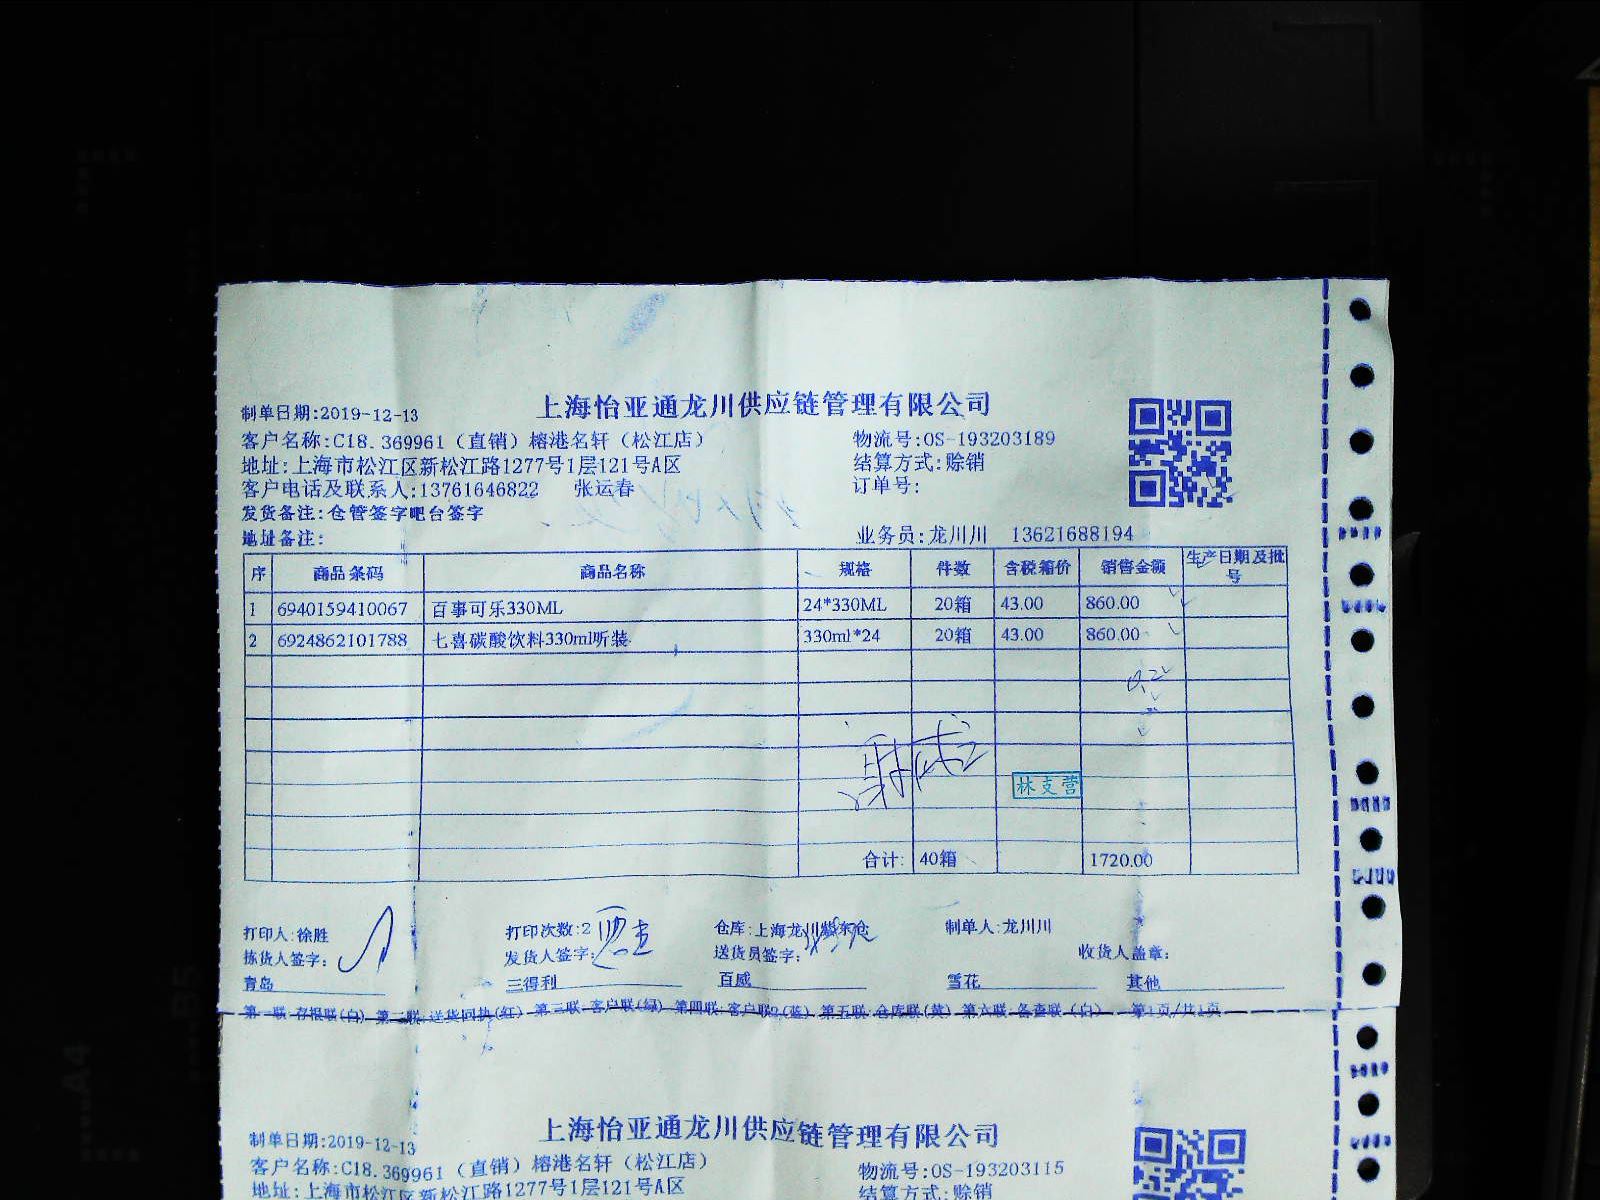 上海怡亚通龙川供应链管理有限公司
制单日期:2019-12-13
客户名称:C18.369961（直销）榕港名轩（松江店） 物流号:OS-193203189
地址:上海市松江区新松江路1277号1层121号A区 结算方式:赊销
客户电话及联系人:13761646822 张运春 订单号:
发货备注:仓管签字吧台签字
地址备注: 业务员:龙川川 13621688194
序 商品条码 商品名称 规格 件数 含税箱价 销售金额 生产日期及批号
1 6940159410067 百事可乐330ML 24*330ML 20箱 43.00 860.00
2 6924862101788 七喜碳酸饮料330ml听装 330ml*24 20箱 43.00 860.00
林支营
合计: 40箱 1720.00
打印人:徐胜 打印次数:2 仓库:上海龙川 制单人:龙川川
拣货人签字: 发货人签字: 送货员签字: 收货人盖章:
青岛 三得利 百威 雪花 其他
第一联 存根联(白) 第二联 送货回执(红) 第三联 客户联(绿) 第四联 客户联2(蓝) 第五联 仓库联(黄) 第六联 备查联（白） 第1页/共1页
上海怡亚通龙川供应链管理有限公司
制单日期:2019-12-13
客户名称:C18.369961（直销）榕港名轩（松江店） 物流号:OS-193203115
地址:上海市松江区新松江路1277号1层121号A区 结算方式:赊销